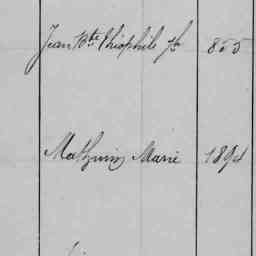 Jean Bte Théophile fs 855
Mathurin Marie 1894